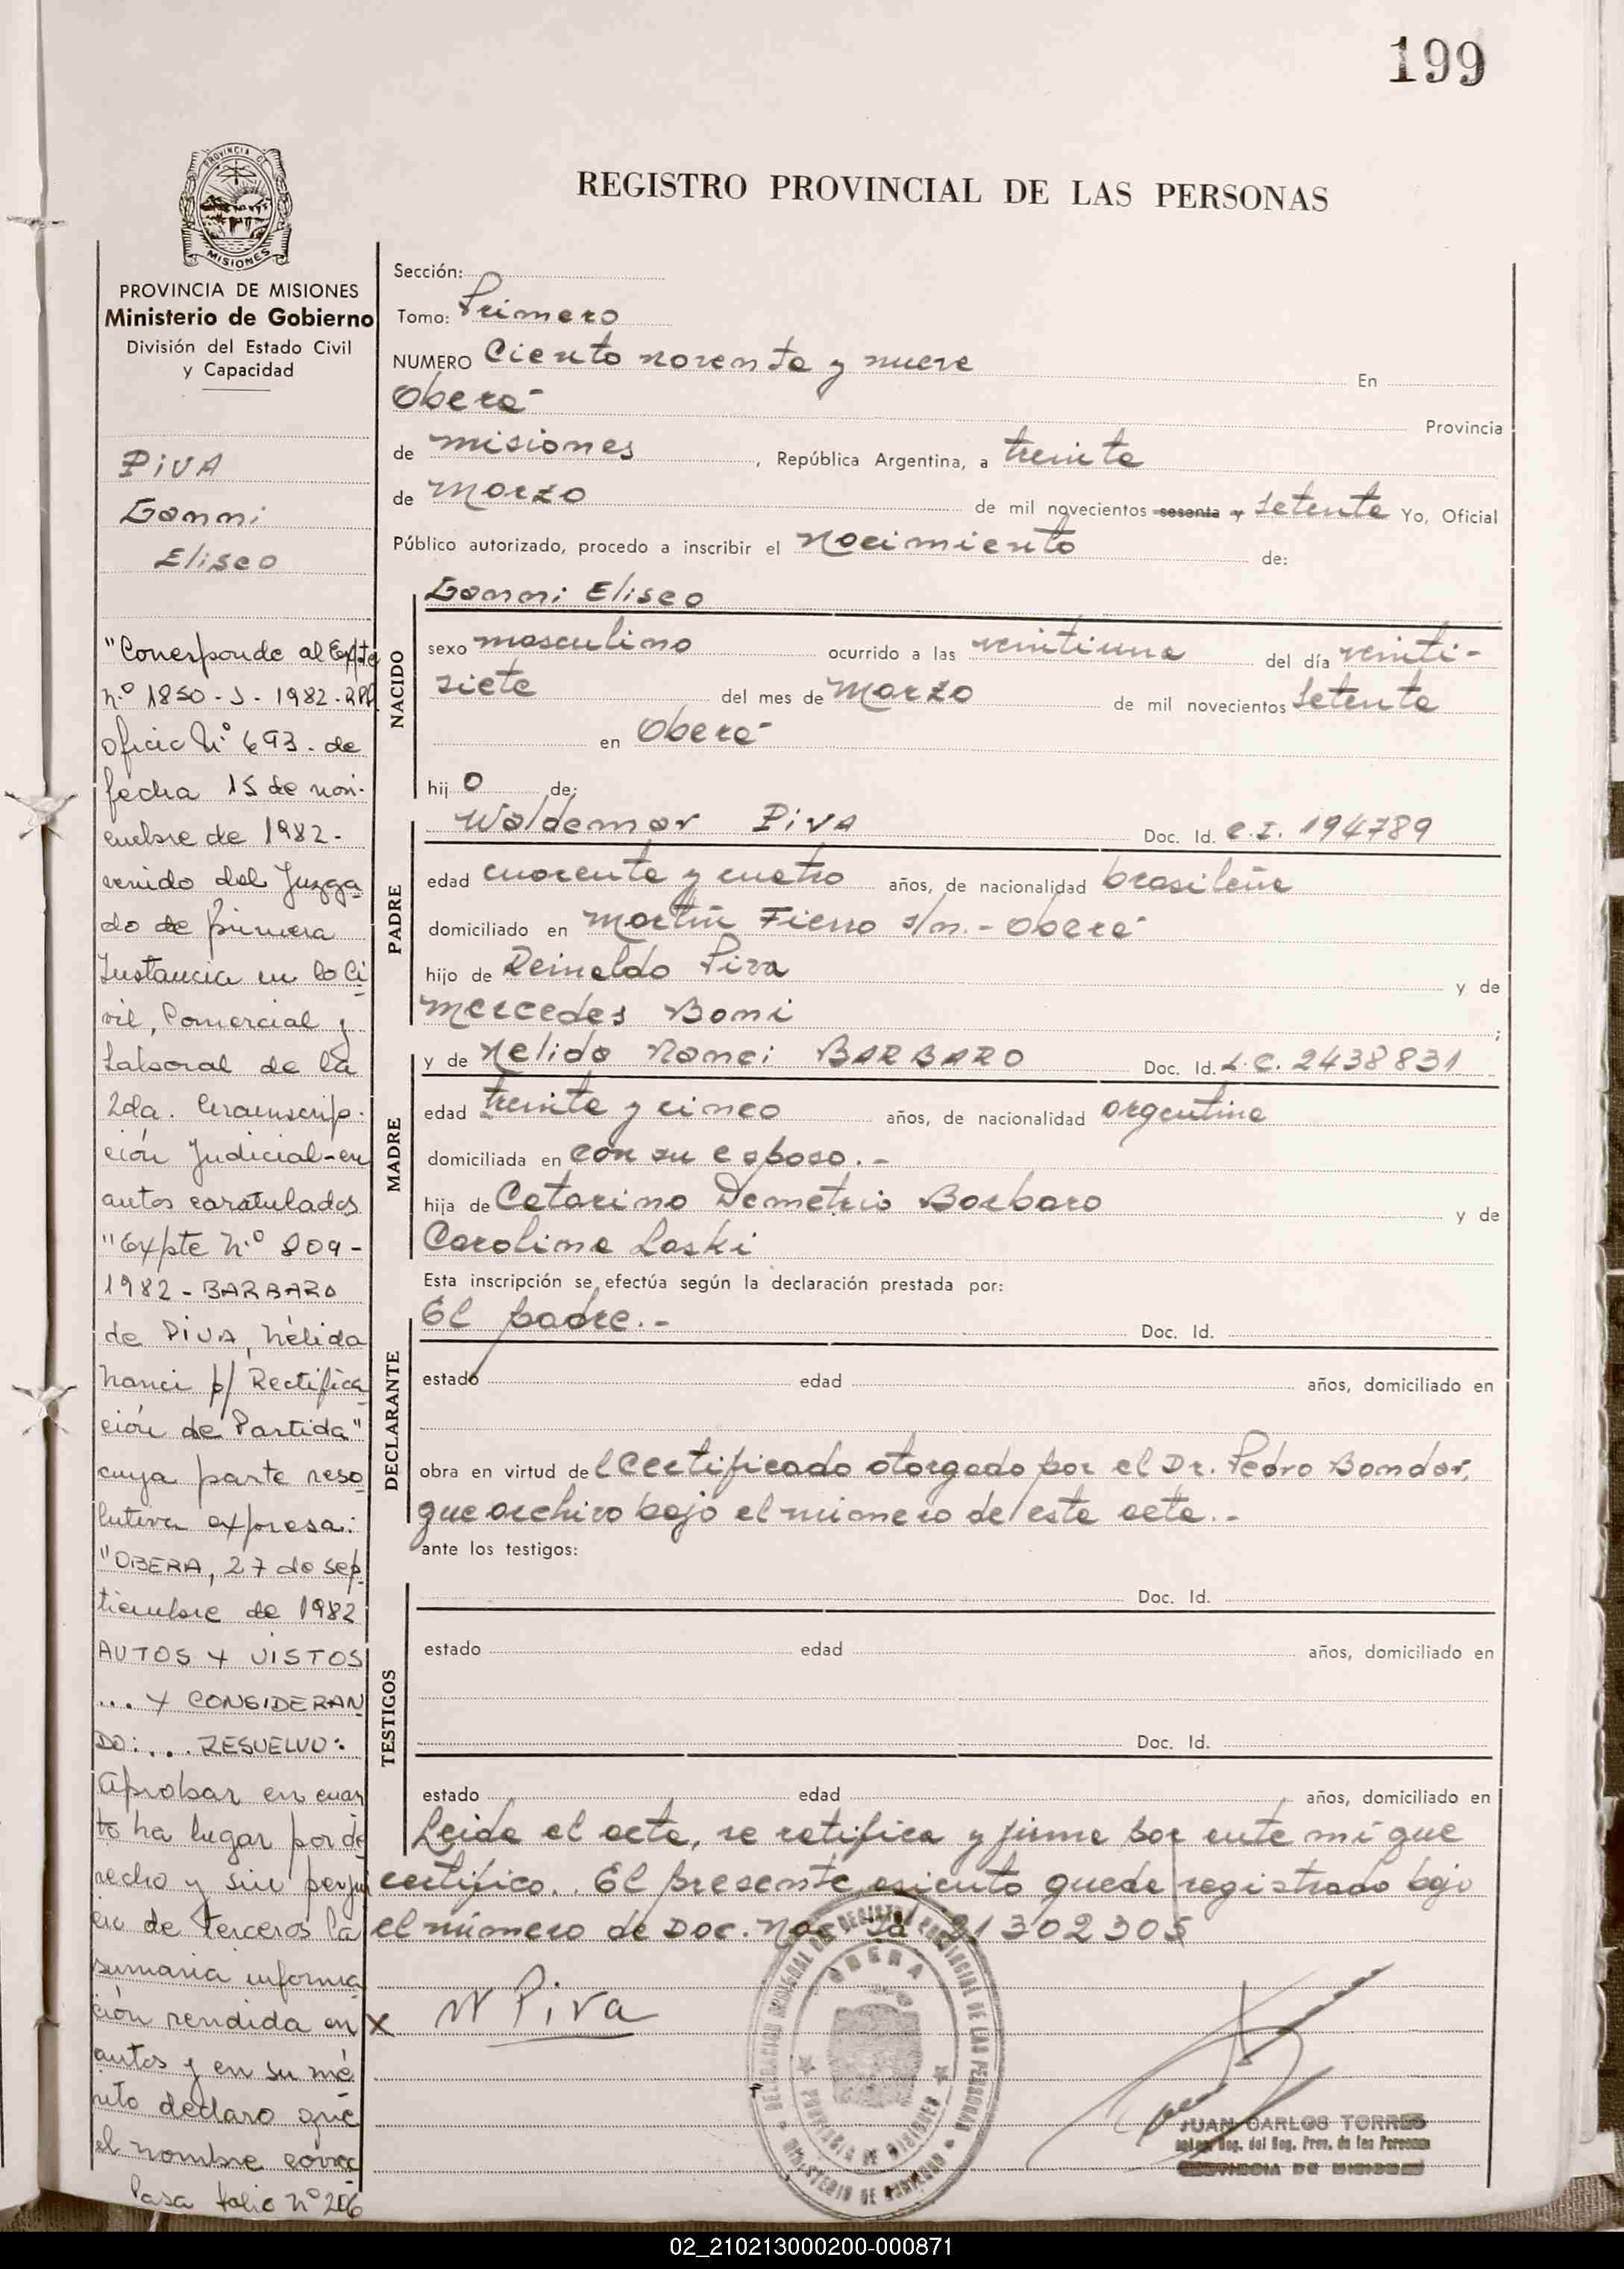 199
PROVINCIA DE
MISIONES
REGISTRO PROVINCIAL DE LAS PERSONAS
PROVINCIA DE MISIONES
Ministerio de Gobierno
División del Estado Civil
y Capacidad
PIVA
Ganni
Eliseo
"Corresponde al Expte
n.º 1850-J-1982-RPP
oficio Nº 693. de
fecha 15 de novi-
embre de 1982-
venido del Juzga
do de primera
Instancia en lo Ci
vil, Comercial y
Laboral de la
2da. Circunscrip-
ción Judicial-en
autos caratulados
"Expte n.º 809-
1982-BARBARO
de PIVA, Nélida
Nanci p/ Rectifica
ción de Partida"
cuya parte reso
lutiva expresa:
"OBERA, 27 de sep
tiembre de 1982
AUTOS Y VISTOS
.... Y CONSIDERAN
DO:... RESUELVO:
Aprobar en cuan
to ha lugar por de
recho y sin perjui
cio de terceros la
sumaria informa
ción rendida en
autos y en su mé
rito declaro que
el nombre correc
Pasa folio nº 206
Sección:
Tomo: Primero
NUMERO Ciento noventa y nueve En
Oberá-
Provincia
de misiones, República Argentina, a treinta
de marzo de mil novecientos sesenta y setenta Yo, Oficial
Público autorizado, procedo a inscribir el nacimiento de:
NACIDO
Ganni Eliseo
sexo masculino ocurrido a las veintiuna del día veinti-
siete del mes de marzo de mil novecientos setenta
en Oberá-
hijo de:
PADRE
Waldemar PIVA Doc. Id. C.I. 194789
edad cuarenta y cuatro años, de nacionalidad brasileña
domiciliado en Martín Fierro s/n.- Oberá-
hijo de Reinaldo Piva y de
Mercedes Boni ;
MADRE
y de Nelida Nanci BARBARO Doc. Id. L.C. 2438831
edad treinta y cinco años, de nacionalidad argentina
domiciliada en con su esposo.-
hija de Catarino Demetrio Barbaro y de
Carolina Laski
Esta inscripción se efectúa según la declaración prestada por:
DECLARANTE
El padre.- Doc. Id.
estado edad años, domiciliado en
obra en virtud del certificado otorgado por el Dr. Pedro Bondar,
que archivo bajo el número de esta acta.-
ante los testigos:
TESTIGOS
Doc. Id.
estado edad años, domiciliado en
Doc. Id.
estado edad años, domiciliado en
Leida el acta, se ratifica y firma por ante mí que
certifico.. El presente asiento queda registrado bajo
el número de Doc. Nac. Id. 21302305
x W Piva
OBERA
PROVINCIA DE MISIONES
MINISTERIO DE GOBIERNO
JUAN CARLOS TORRES
Reg. del Reg. Prov. de las Personas
PROVINCIA DE MISIONES
02_210213000200-000871